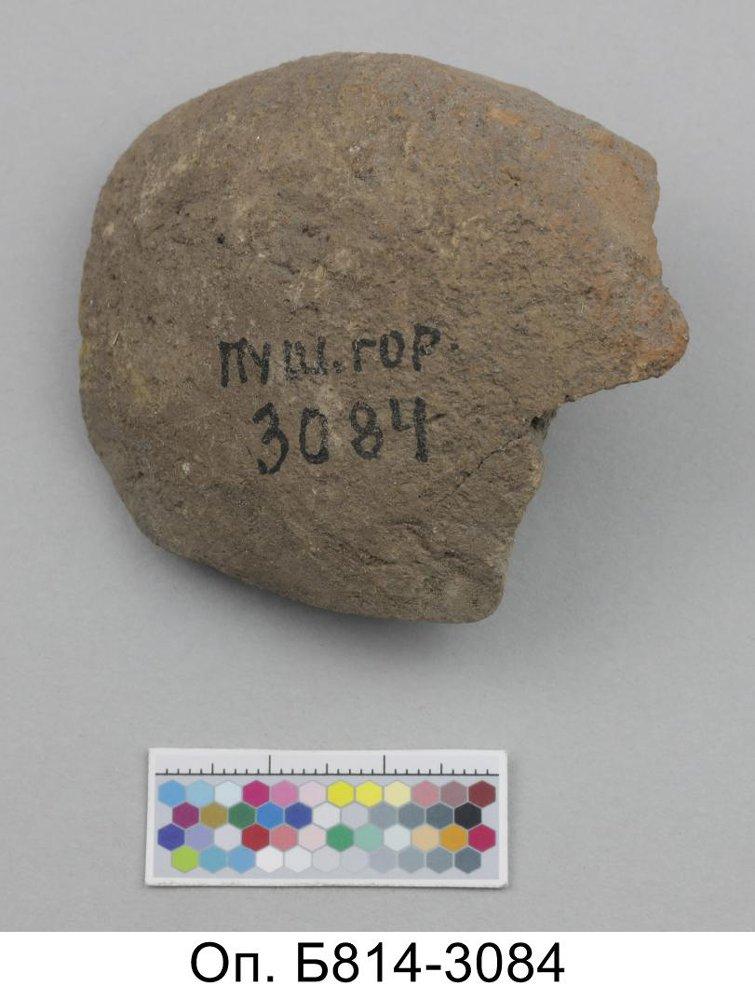 ПУШ. ГОР.
3084
Оп. Б814-3084